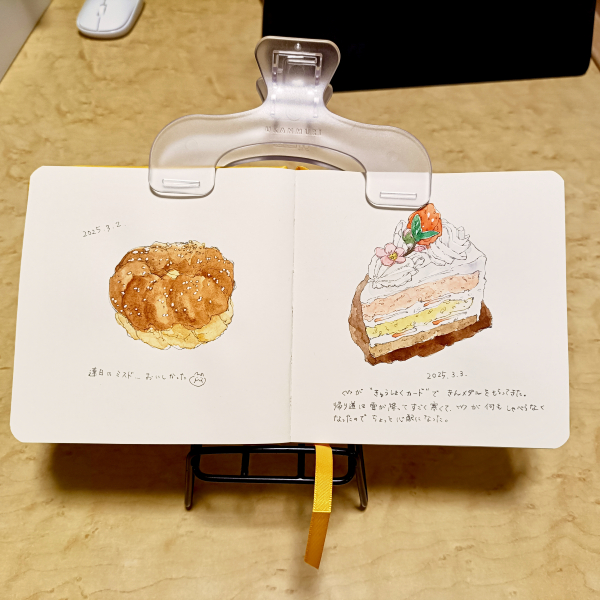 2025.3.2
連日のミスド… おいしかった
2025.3.3.
が "きゅうしょくカード" で きんメダルをもらってきた。
帰り道は雪が降っててすごく寒くて、 が 何も しゃべらなく
なったので ちょっと心配になった。